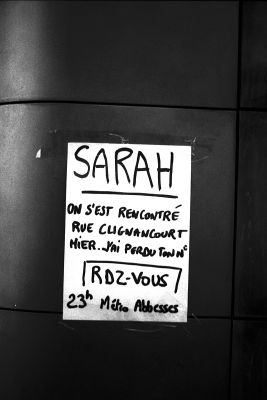 SARAH
ON S'EST RENCONTRÉ
RUE CLIGNANCOURT
HIER..J'AI PERDU TON N°
RDZ-VOUS
23h Métro Abbesses